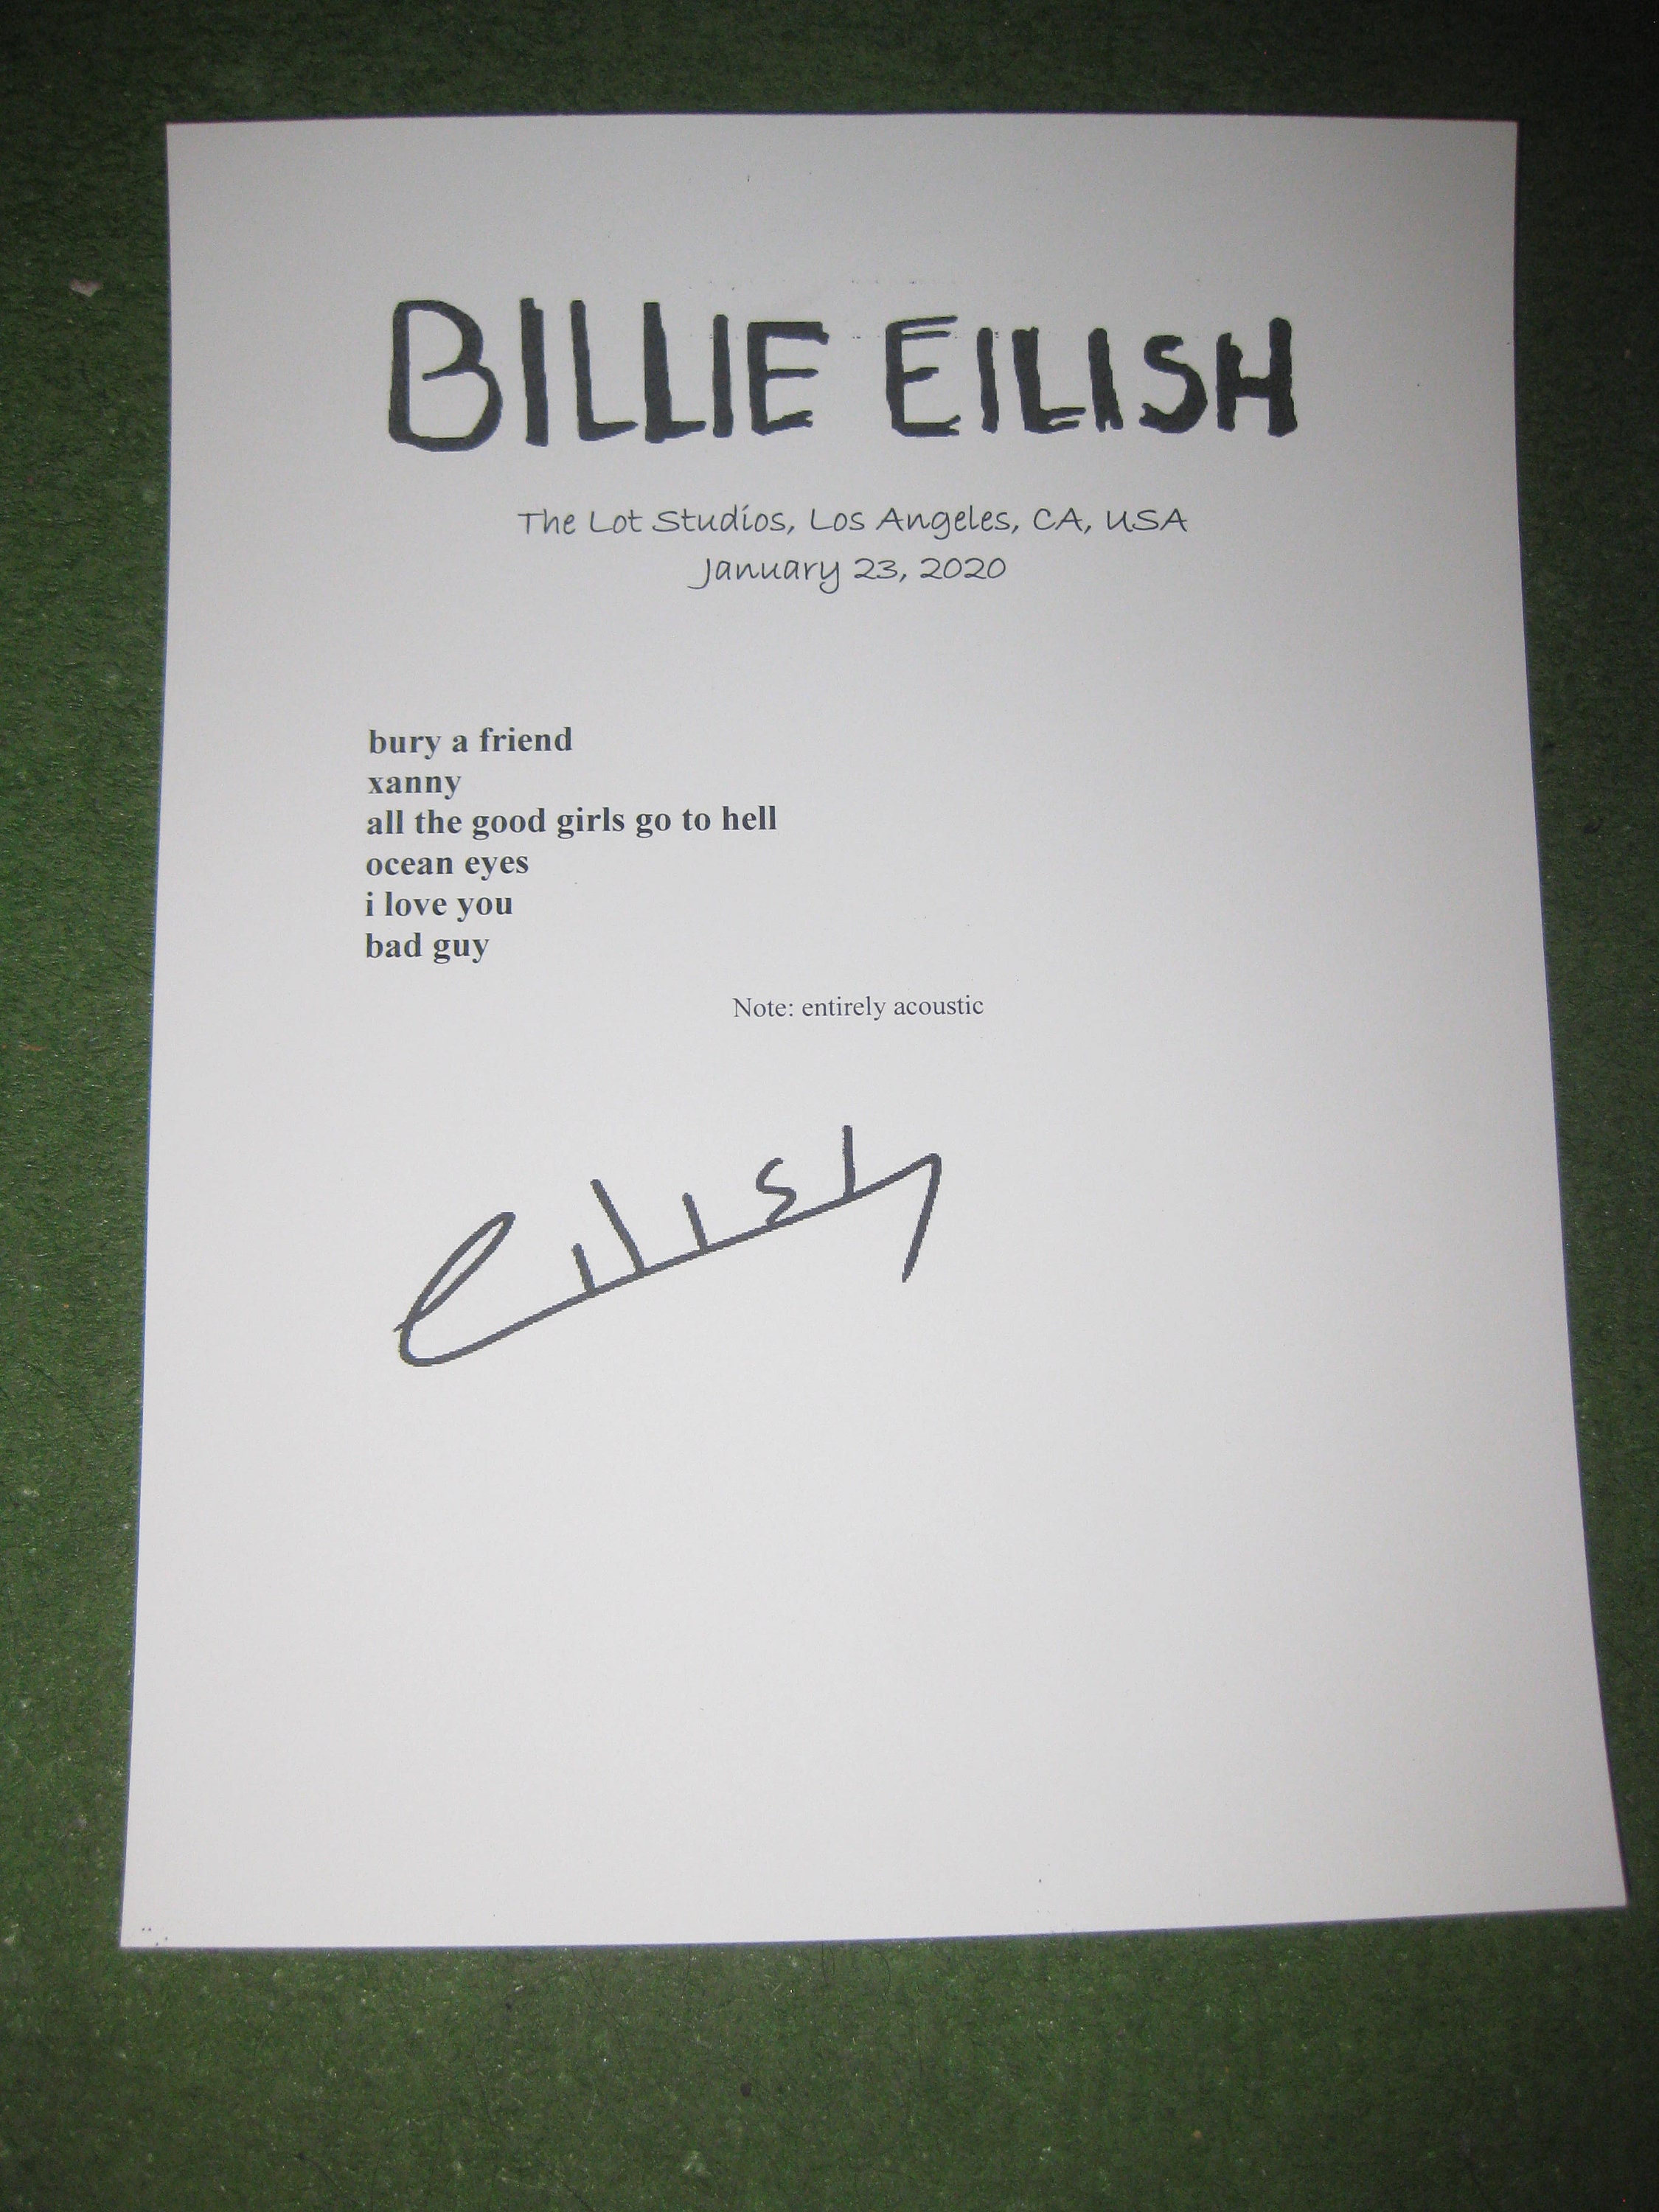 BILLIE EILISH
The Lot Studios, Los Angeles, CA, USA
January 23, 2020
bury a friend
xanny
all the good girls go to hell
ocean eyes
i love you
bad guy
Note: entirely acoustic
eilish